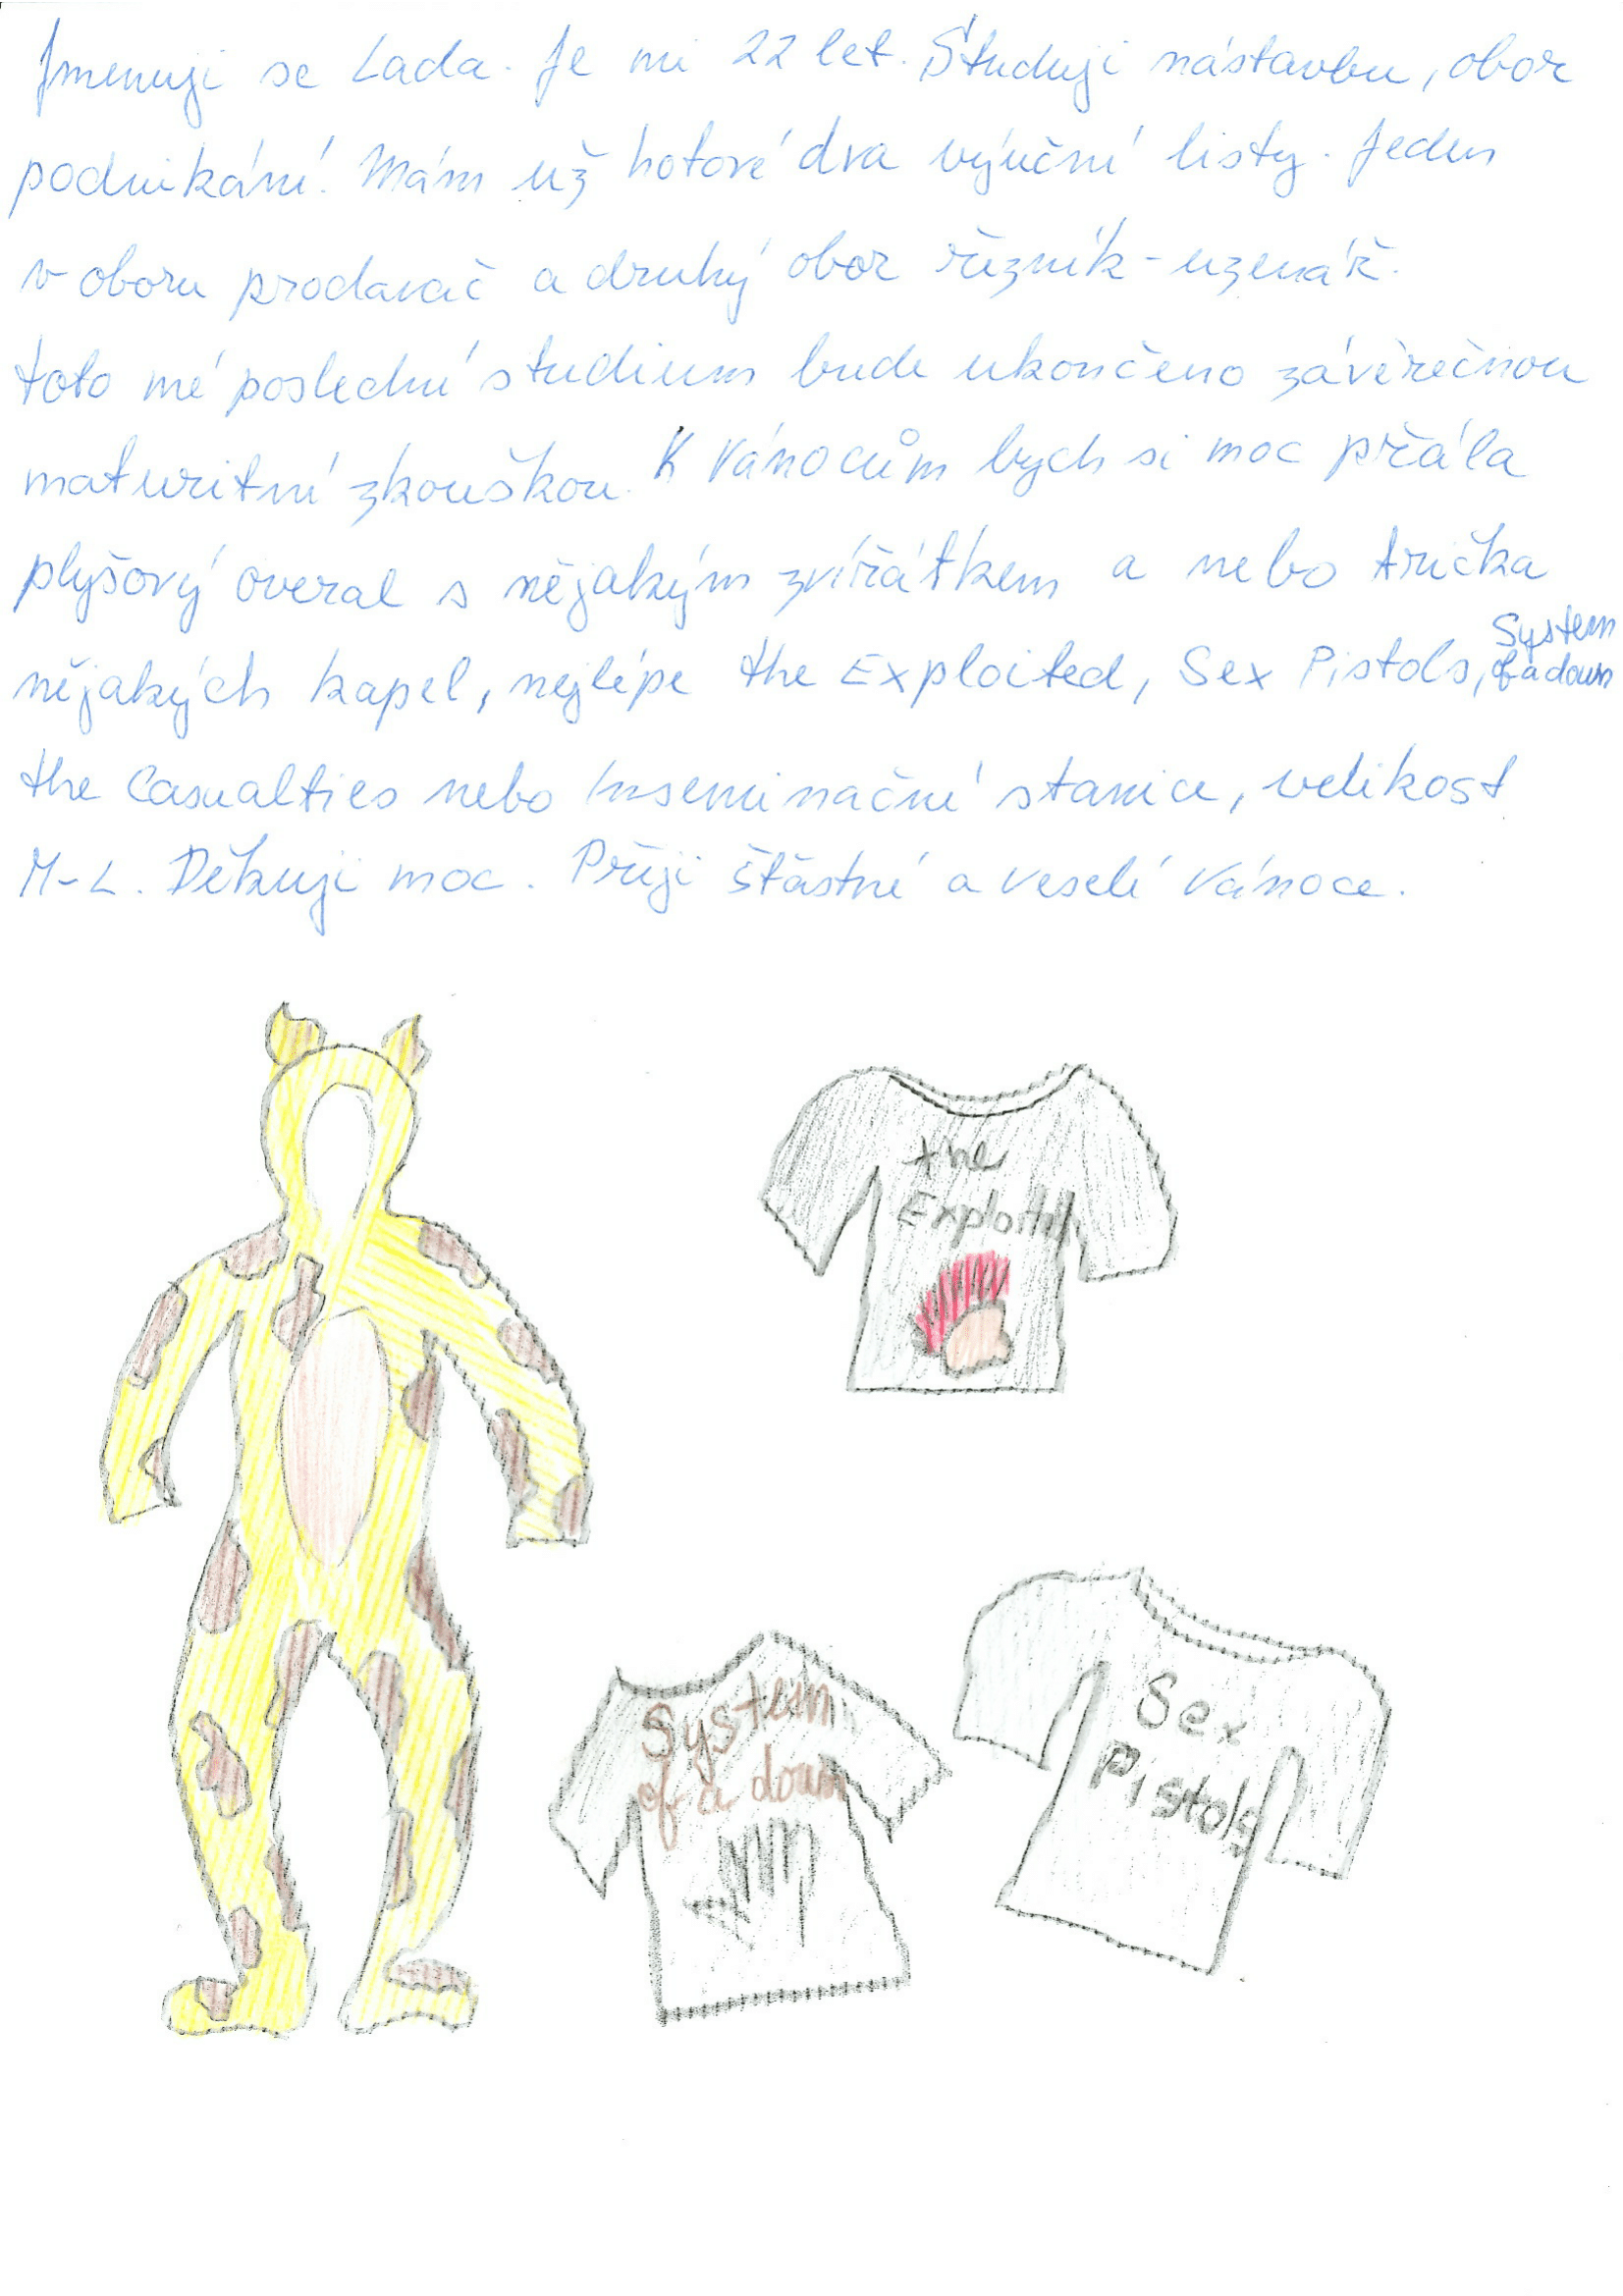 Jmenuji se Lada. Je mi 22 let. Študuji nástavbu, obor
podnikání. Mám už hotové dva výuční listy. Jeden
v oboru prodavač a druhý obor řezník-uzenář.
toto mé poslední studium bude ukončeno závěrečnou
maturitní zkouškou. K Vánocům bych si moc přála
plyšový overal s nějakým zvířátkem a nebo trička
nějakých kapel, nejlépe the Exploited, Sex Pistols, System of a down
the Casualties nebo Inseminační stanice, velikost
M-L. Děkuji moc. Přeji šťastné a veselé Vánoce.
the
Exploited
System
of a down
Sex
Pistols